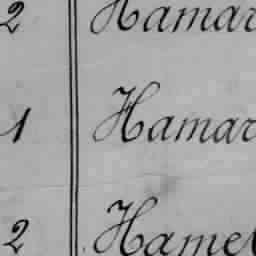 2 Hamar
1 Hamar
2 Hamel